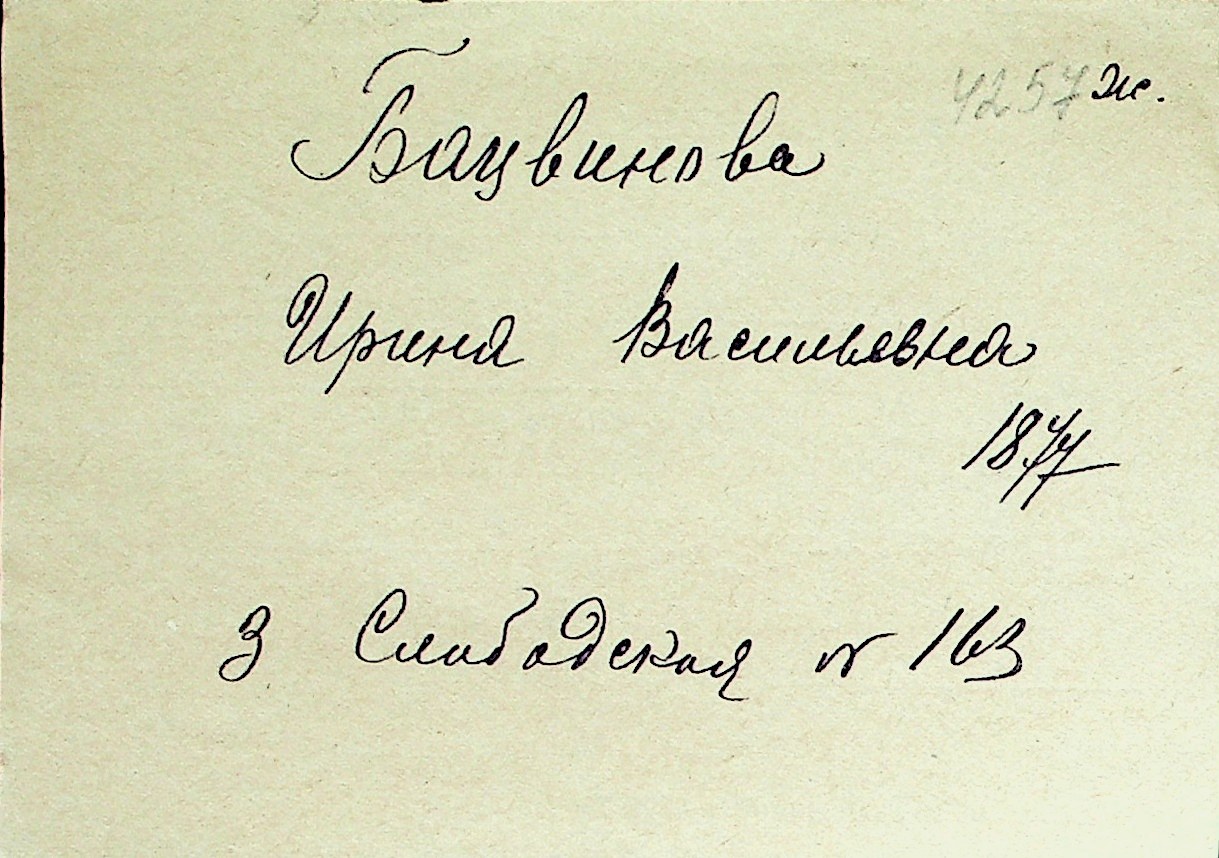 4257 ж.
Бацвинова
Ирина Васильевна
1877
3 Слободская № 163